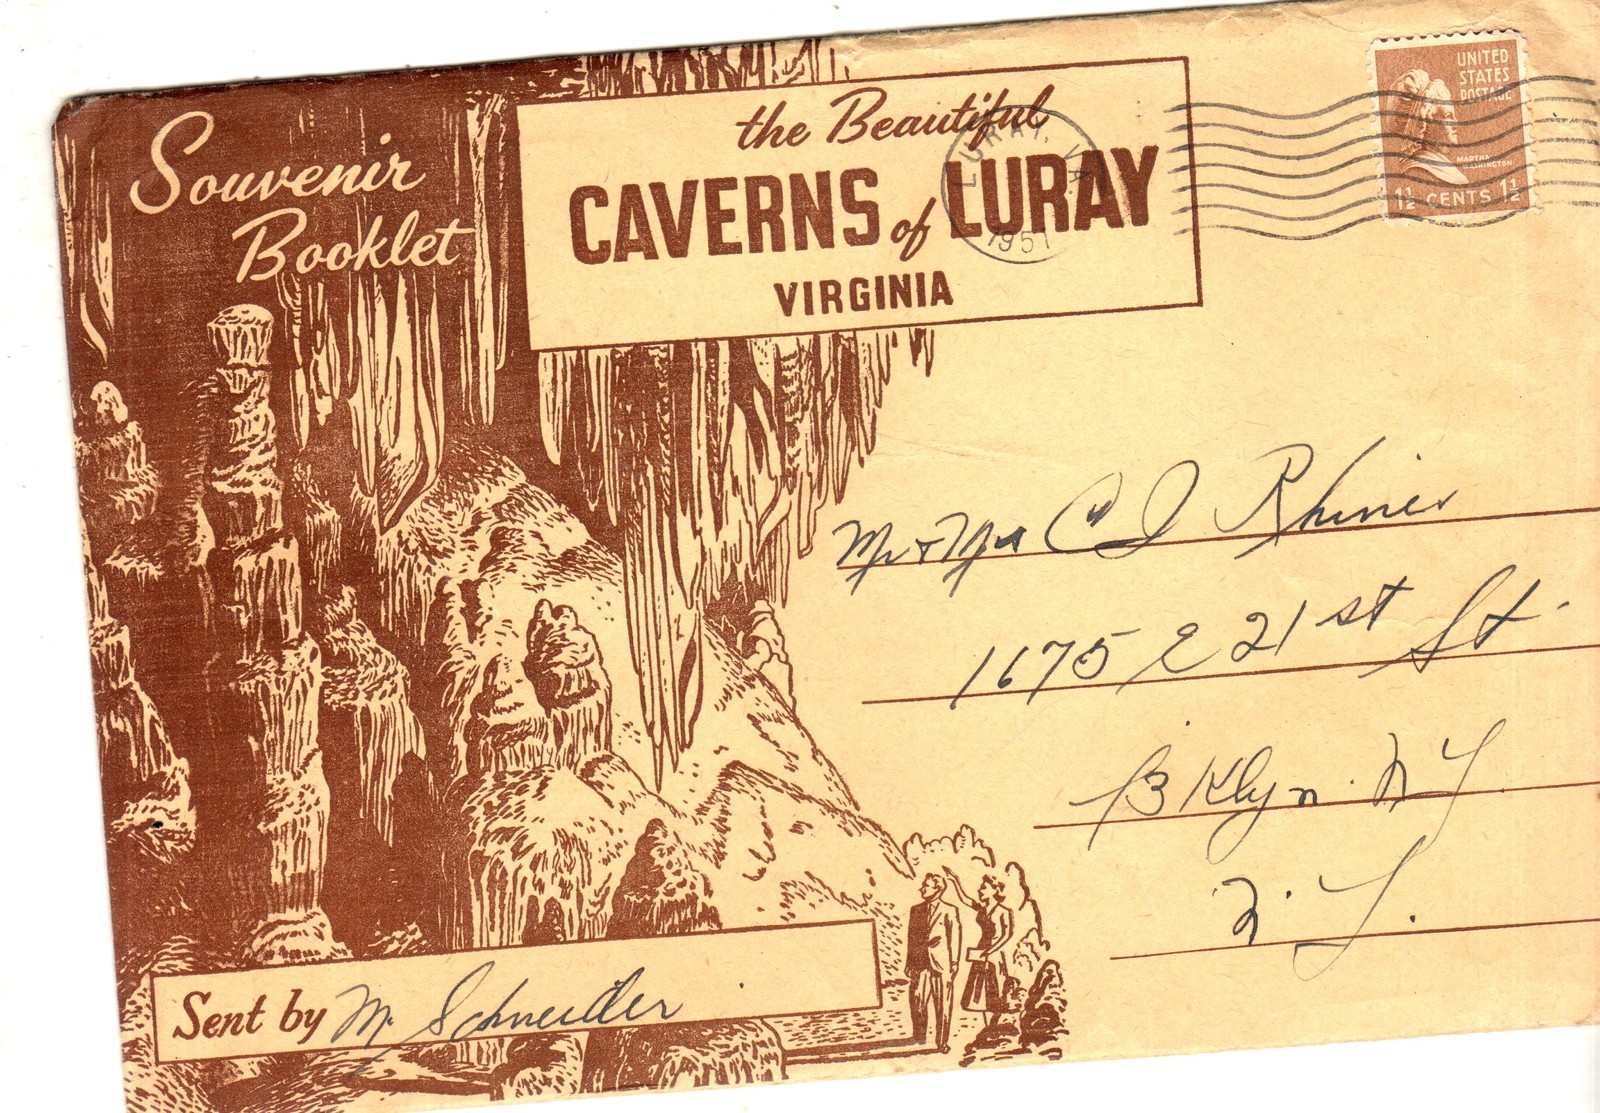 Souvenir
Booklet
the Beautiful
CAVERNS of LURAY
VIRGINIA
LURAY, VA.
1951
UNITED
STATES
POSTAGE
MARTHA
WASHINGTON
1½ CENTS 1½
Mr + Mrs C J Rhines
1675 E 21st St.
Bklyn. N Y.
N. Y.
Sent by M. Schneider